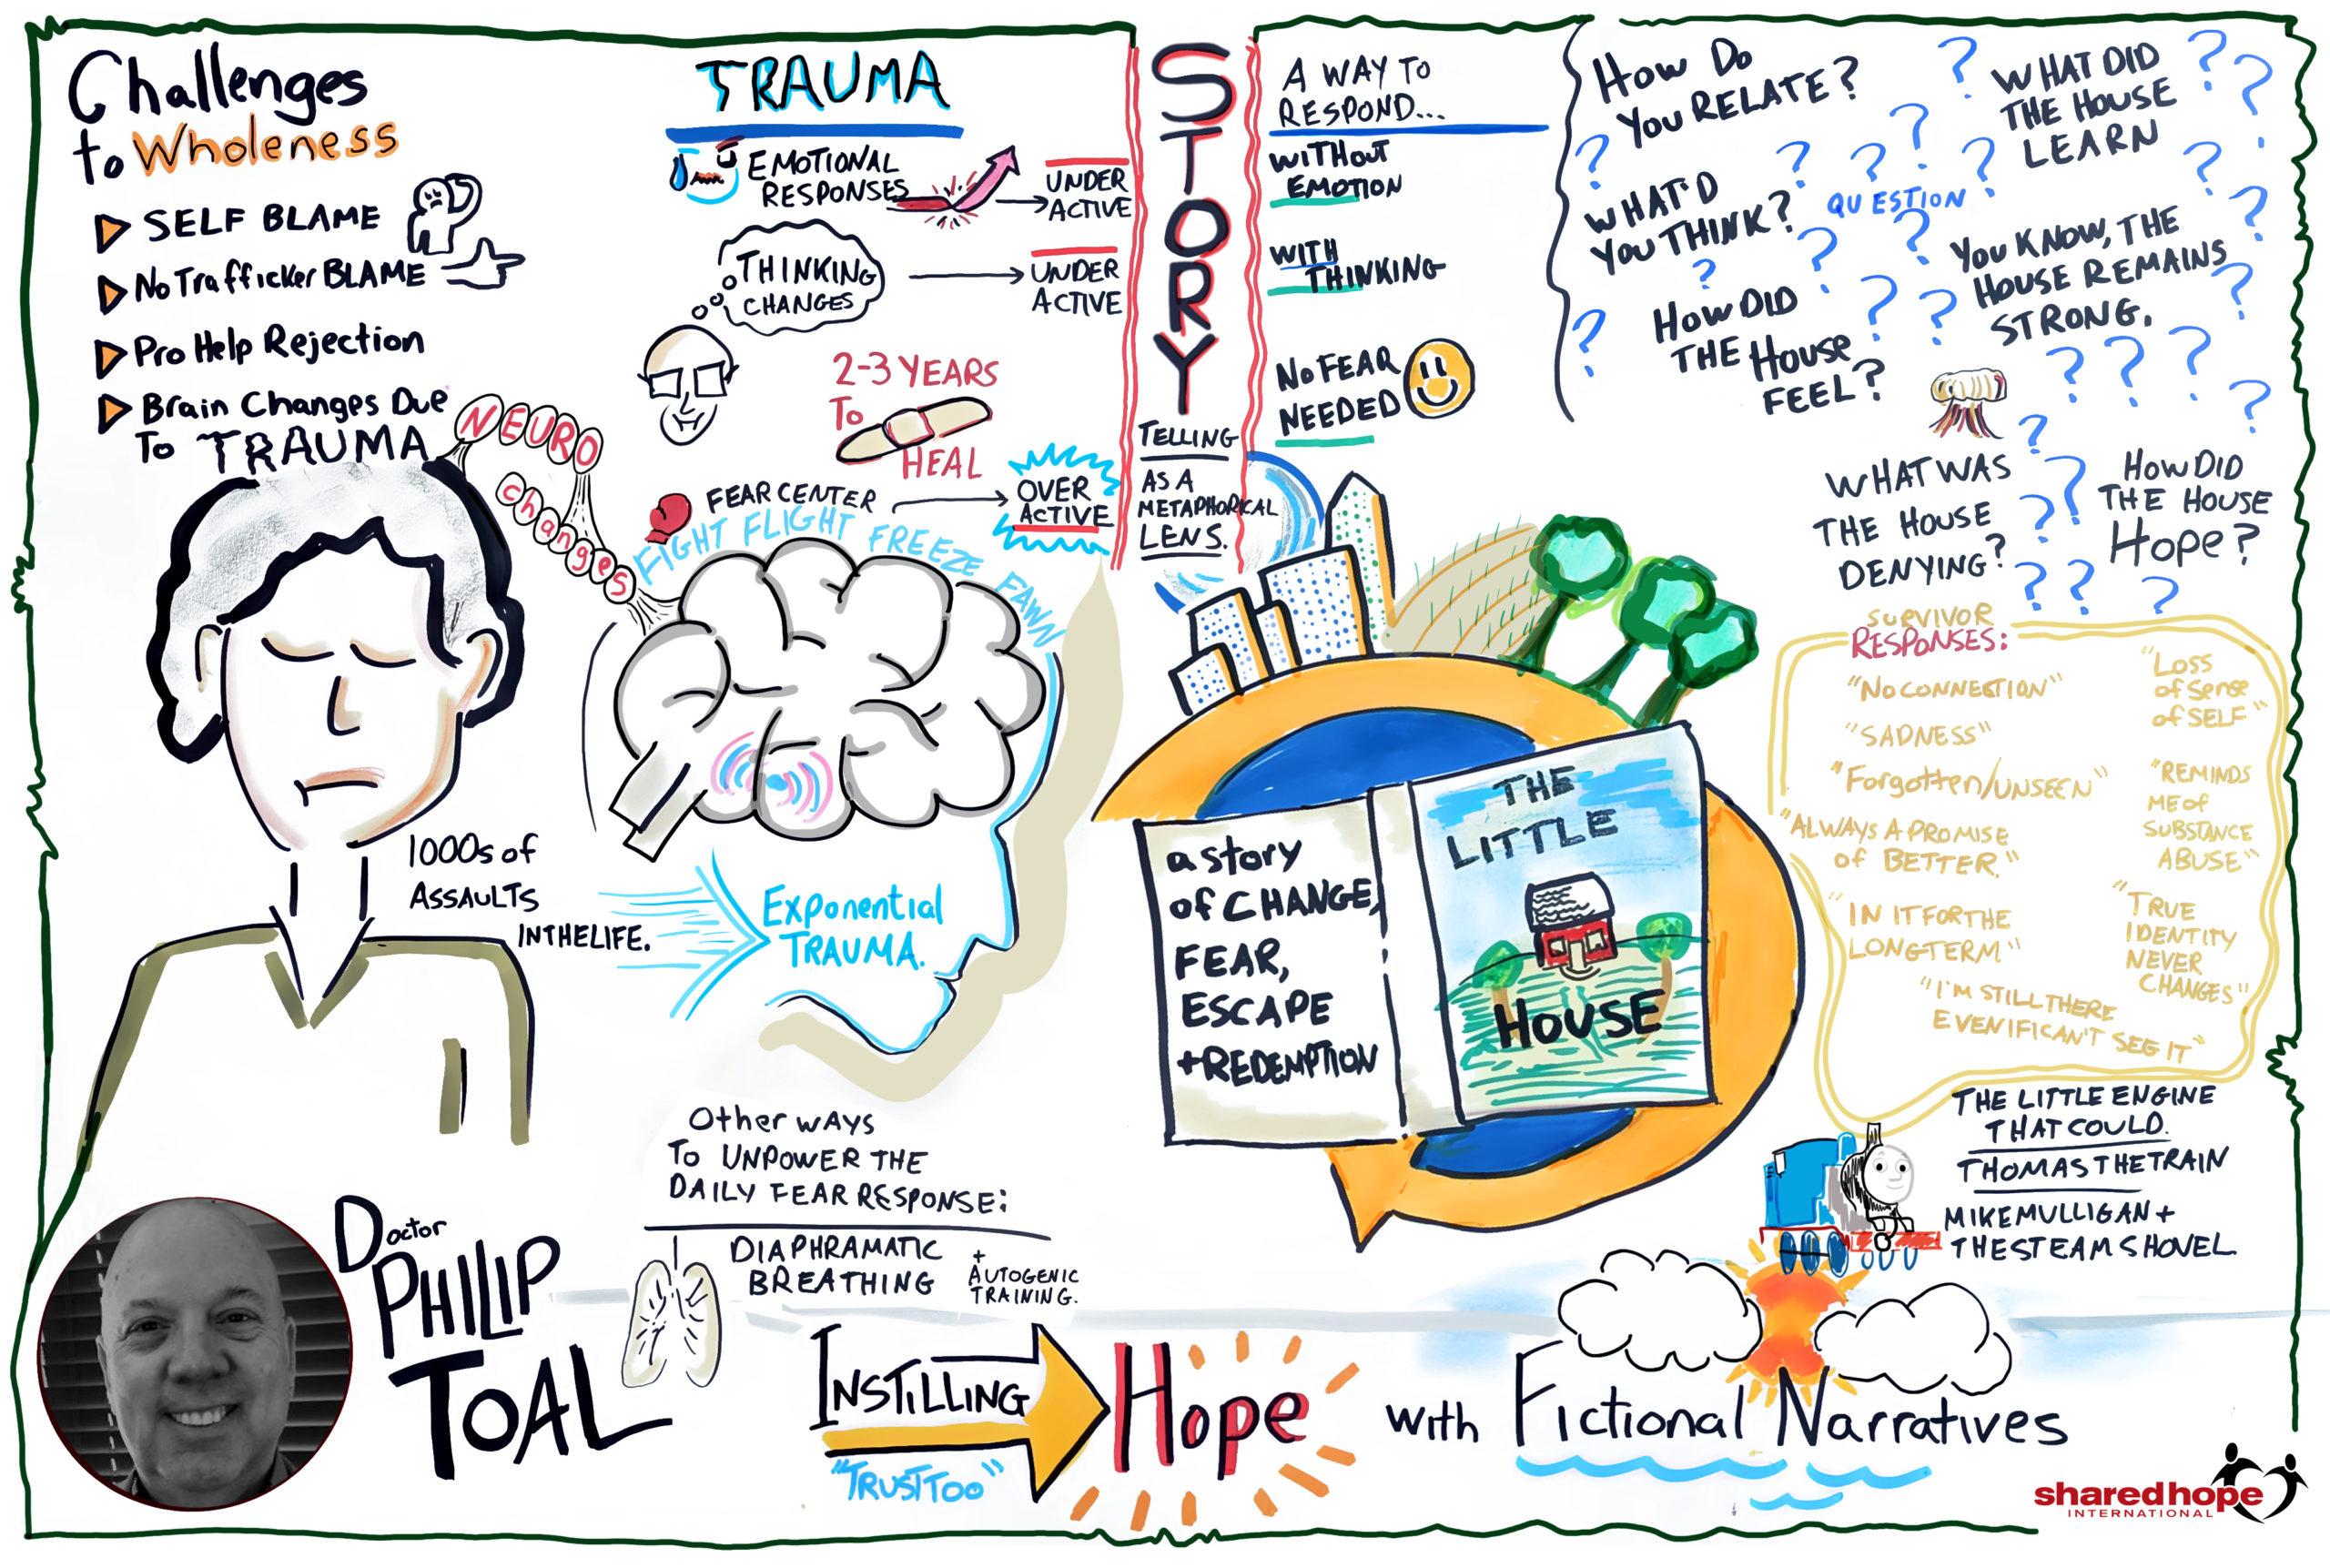 Challenges
to Wholeness
SELF BLAME
No Trafficker BLAME
Pro Help Rejection
Brain Changes Due
To TRAUMA
NEURO
changes
TRAUMA
EMOTIONAL
RESPONSES
UNDER
ACTIVE
THINKING
CHANGES
UNDER
ACTIVE
2-3 YEARS
To
HEAL
FEAR CENTER
OVER
ACTIVE
FIGHT FLIGHT FREEZE FAWN
1000s of
ASSAULTS
IN THE LIFE.
Exponential
TRAUMA.
STORY
TELLING
AS A
METAPHORICAL
LENS.
A WAY TO
RESPOND...
WITHOUT
EMOTION
WITH
THINKING
No FEAR
NEEDED
How Do
You RELATE?
WHAT DID
THE HOUSE
LEARN
WHAT'D
YOU THINK?
QUESTION
YOU KNOW, THE
HOUSE REMAINS
STRONG.
HOW DID
THE HOUSE
FEEL?
WHAT WAS
THE HOUSE
DENYING?
HOW DID
THE HOUSE
HOPE?
SURVIVOR
RESPONSES:
"NO CONNECTION"
"LOSS
of SENSE
of SELF"
"SADNESS"
"Forgotten/UNSEEN"
"REMINDS
ME OF
SUBSTANCE
ABUSE"
"ALWAYS A PROMISE
of BETTER."
"IN IT FOR THE
LONG TERM"
"TRUE
IDENTITY
NEVER
CHANGES"
"I'M STILL THERE
EVEN IF I CAN'T SEE IT"
a story
of CHANGE,
FEAR,
ESCAPE
+REDEMPTION
THE
LITTLE
HOUSE
THE LITTLE ENGINE
THAT COULD.
THOMAS THE TRAIN
MIKE MULLIGAN +
THE STEAM SHOVEL
Other WAYS
To UNPOWER THE
DAILY FEAR RESPONSE:
DIAPHRAMATIC
BREATHING
+
AUTOGENIC
TRAINING.
Doctor
PHILIP
TOAL
INSTILLING
Hope
with Fictional Narratives
"TRUST TOO"
sharedhope
INTERNATIONAL